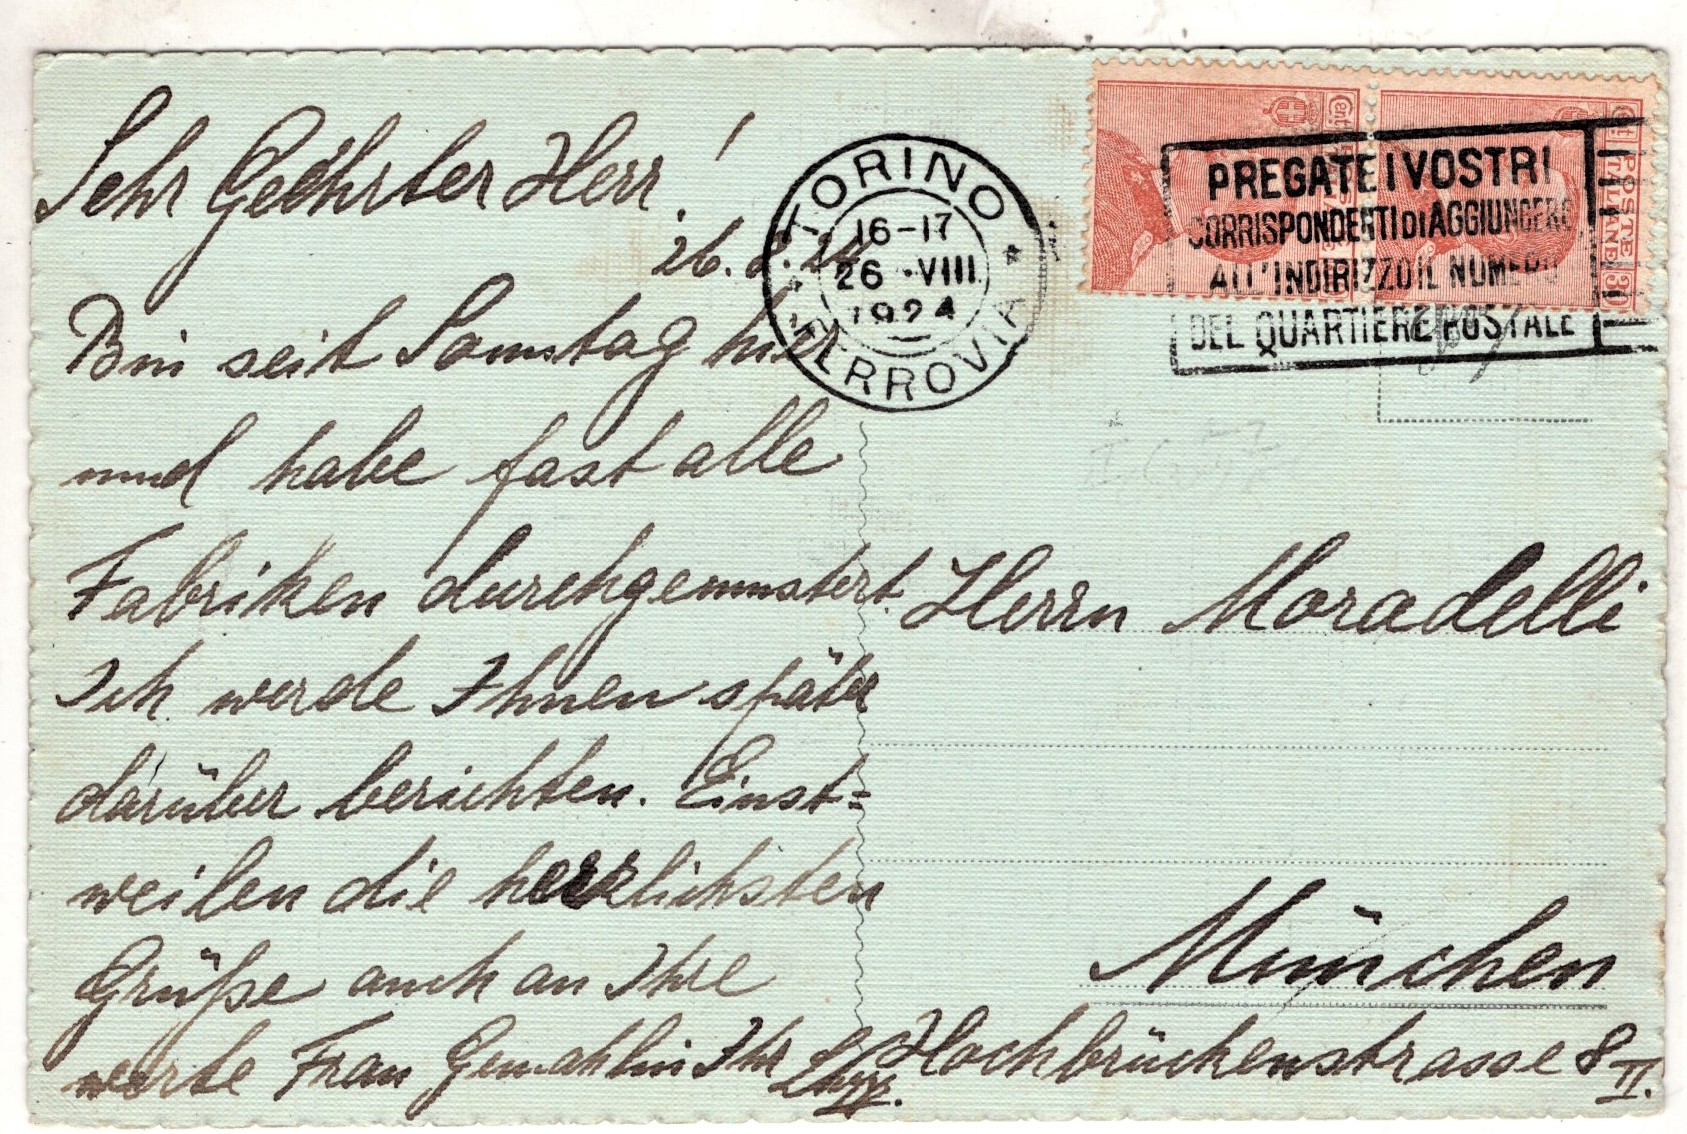 Sehr Geehrter Herr!
26.8.24
Bin seit Samstag hier
und habe fast alle
Fabriken durchgemustert.
Ich werde Ihnen später
darüber berichten. Einst=
weilen die herzlichsten
Grüße auch an Ihre
werte Frau Gemahlin Ihr
TORINO
16-17
26 · VIII
1924
FERROVIA
Cent. POSTE 30
ITALIANE
PREGATE I VOSTRI
CORRISPONDENTI DI AGGIUNGERE
ALL'INDIRIZZO IL NUMERO
DEL QUARTIERE POSTALE
Herrn Moradelli
München
Hochbrückenstrasse 8 II.